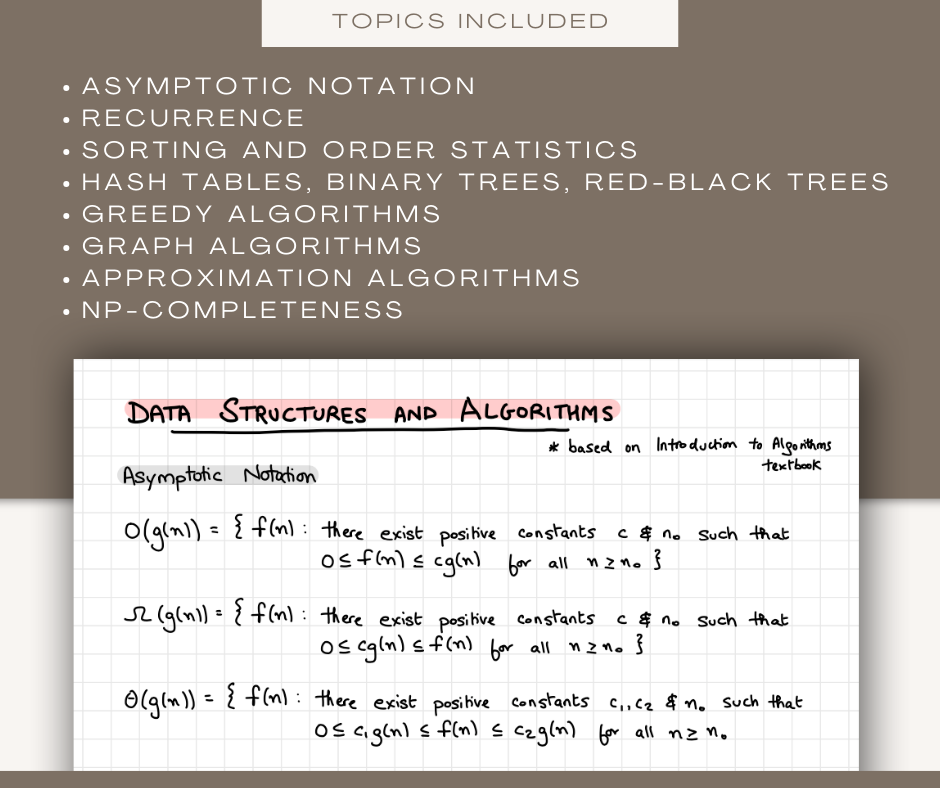 TOPICS INCLUDED
• ASYMPTOTIC NOTATION
• RECURRENCE
• SORTING AND ORDER STATISTICS
• HASH TABLES, BINARY TREES, RED-BLACK TREES
• GREEDY ALGORITHMS
• GRAPH ALGORITHMS
• APPROXIMATION ALGORITHMS
• NP-COMPLETENESS
DATA STRUCTURES AND ALGORITHMS
* based on Introduction to Algorithms
textbook
Asymptotic Notation
O(g(n)) = { f(n) : there exist positive constants c & n₀ such that
0 ≤ f(n) ≤ cg(n) for all n ≥ n₀ }
Ω(g(n)) = { f(n) : there exist positive constants c & n₀ such that
0 ≤ cg(n) ≤ f(n) for all n ≥ n₀ }
Θ(g(n)) = { f(n) : there exist positive constants c₁, c₂ & n₀ such that
0 ≤ c₁g(n) ≤ f(n) ≤ c₂g(n) for all n ≥ n₀